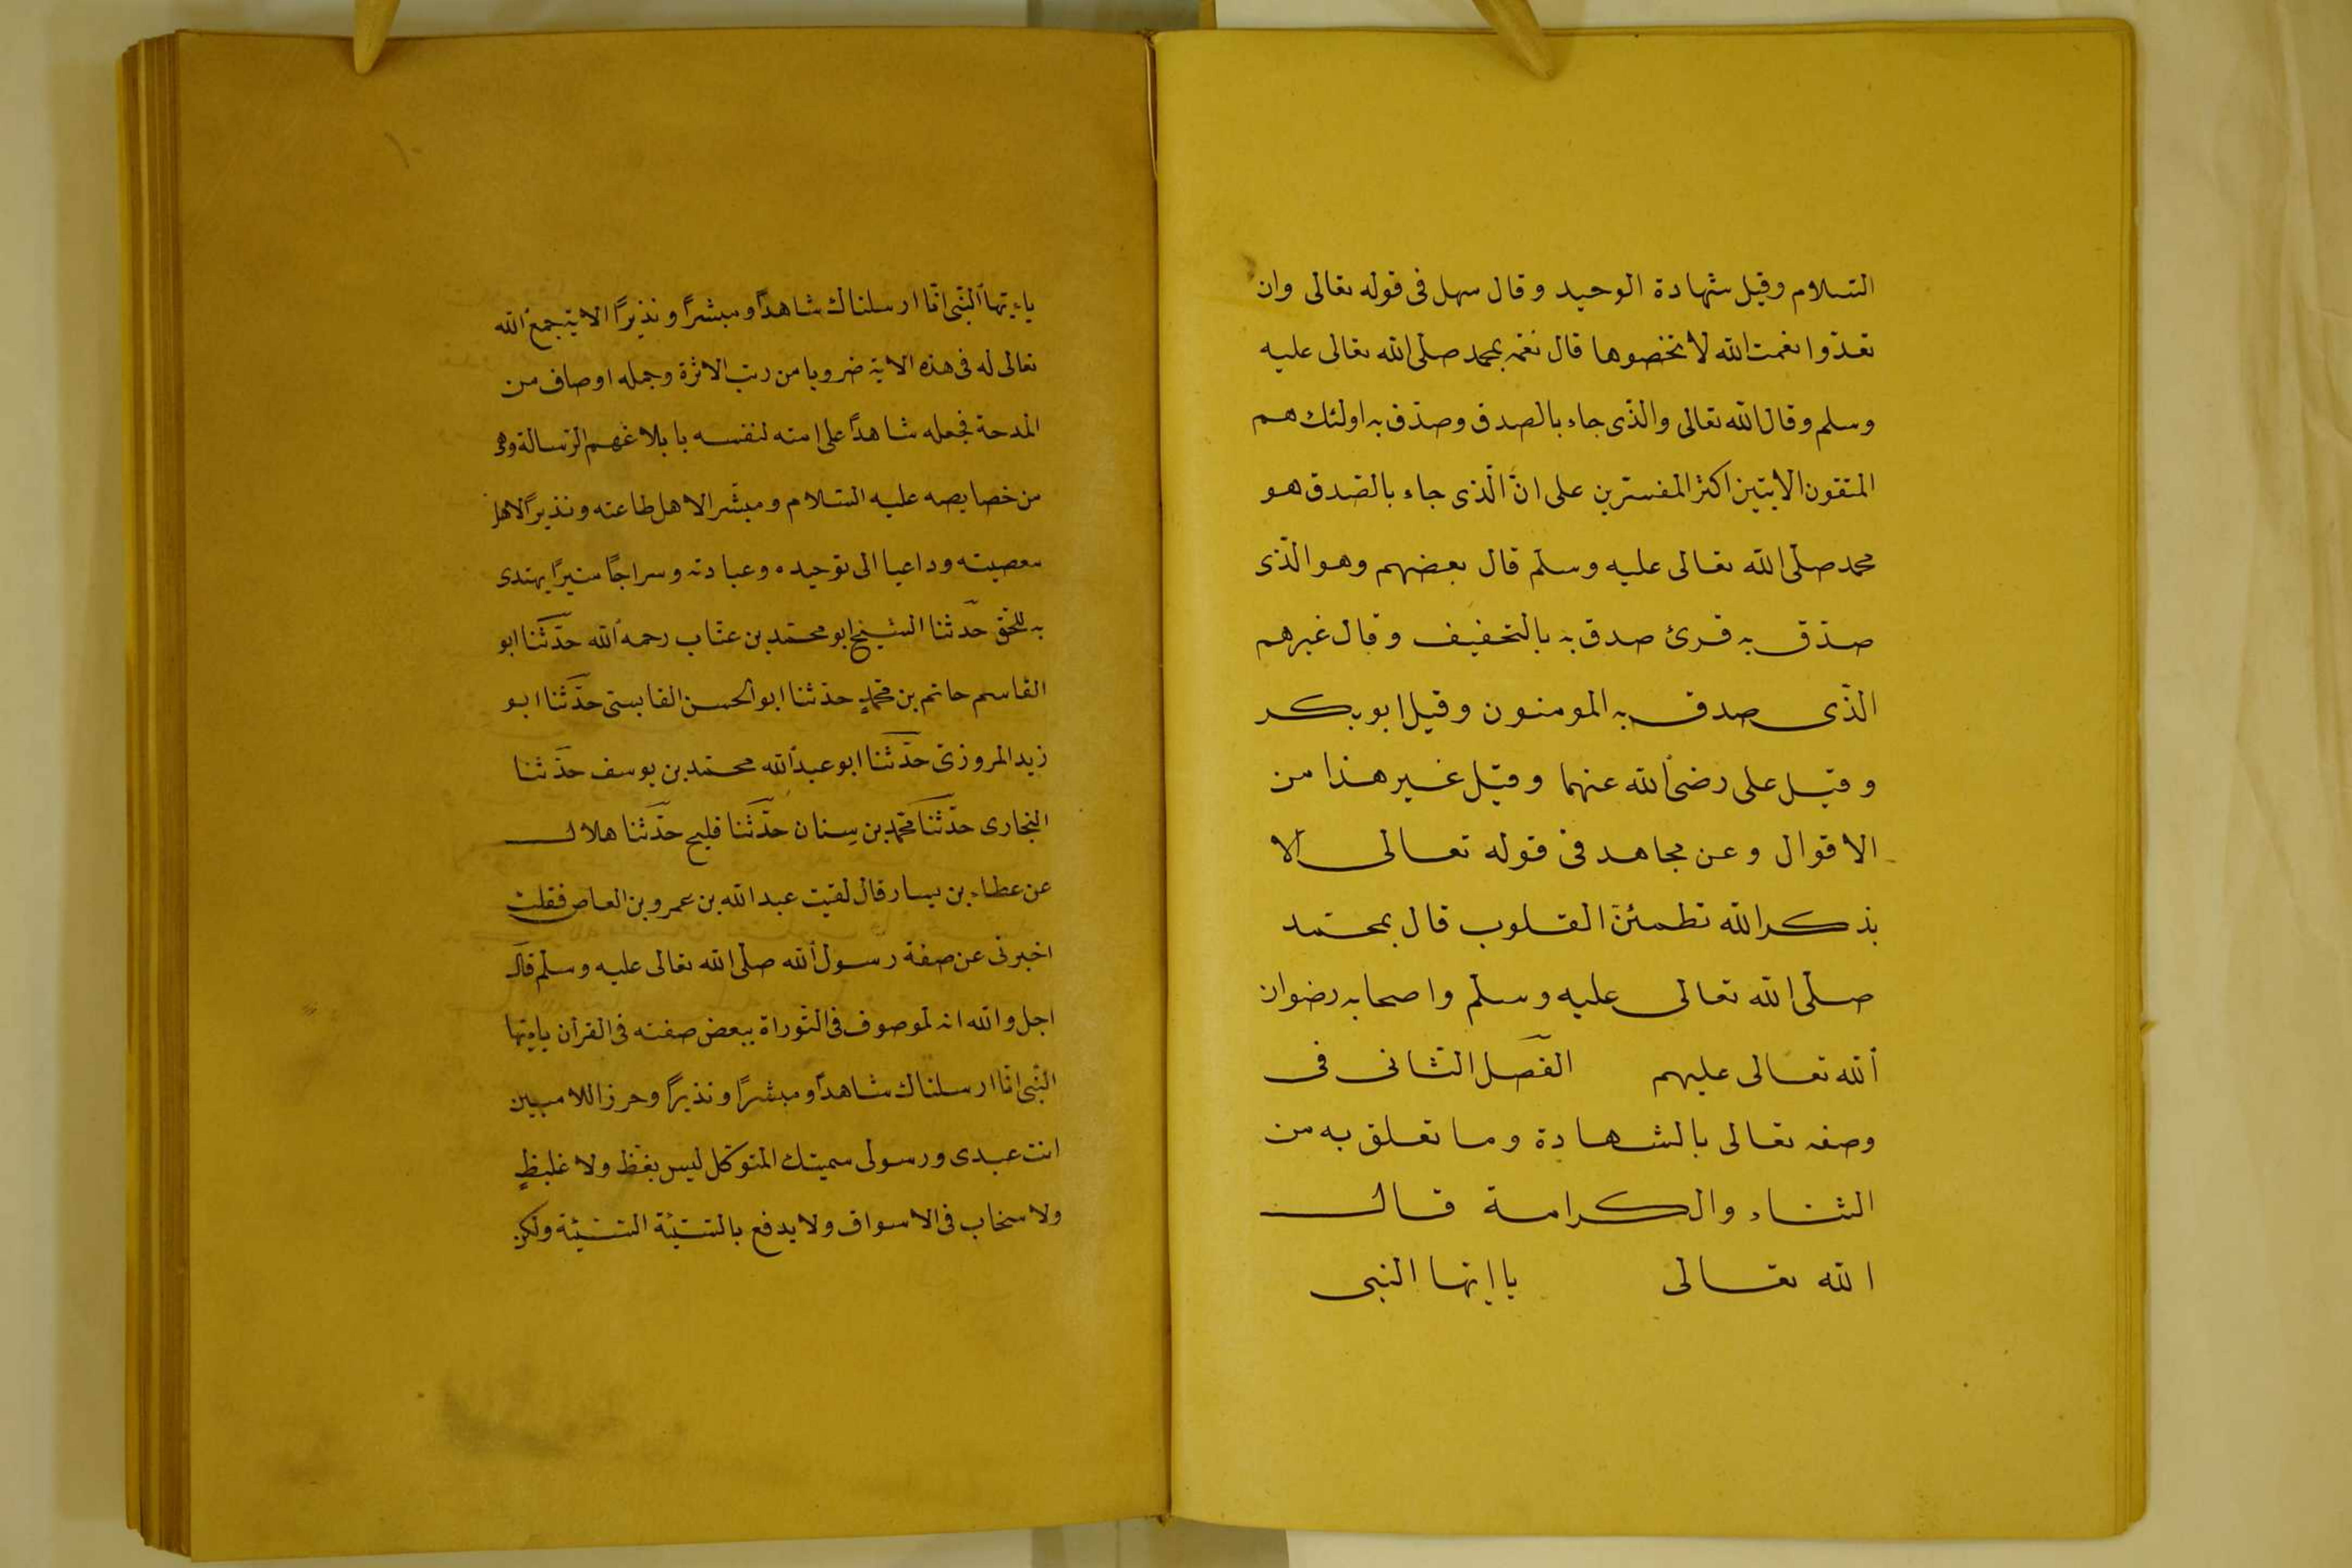 السلام وقيل شهادة الوحيد وقال سهل فى قوله تعالى وان
تعدّوا نعمت الله لا تخصوها قال نعمه بمحمد صلّى الله تعالى عليه
وسلم وقال الله تعالى والذّى جاء بالصدق وصدّق به اولئك هم
المتقون الايتين اكثر المفسّرين على انّ الّذى جاء بالصّدق هو
محمد صلّى الله تعالى عليه وسلّم قال بعضهم وهو الّذى
صدّق به قرئ صدق به بالتخفيف وقال غيرهم
الذّى صدق به المومنون وقيل ابو بكر
وقيل على رضى الله عنهما وقيل غير هذا من
الاقوال وعن مجاهد فى قوله تعالى الا
بذكر الله تطمئنّ القلوب قال بمحمّد
صلّى الله تعالى عليه وسلّم واصحابه رضوان
الله تعالى عليهم الفصل الثانى فى
وصفه تعالى بالشهادة وما تعلق به من
الثناء والكرامة قال
الله تعالى يا ايها النبى
ياءيّها النّبى انّا ارسلناك شاهدًا ومبشرًا ونذيرًا الاية جمع الله
تعالى له فى هذه الاية ضروبا من رتب الاثرة وجمله اوصاف من
المدحة فجعله شاهدًا على امته لنفسه بابلاغهم الرّسالة وهى
من خصايصه عليه السّلام ومبشّرا لاهل طاعته ونذيرًا لاهل
معصيته وداعيا الى توحيده وعبادته وسراجًا منيرًا يهتدى
به للحقّ حدّثنا الشيخ ابو محمّد بن عتّاب رحمه الله حدّثنا ابو
القاسم حاتم بن محمّدٍ حدّثنا ابو الحسن القابسىّ حدّثنا ابو
زيد المروزىّ حدّثنا ابو عبد الله محمّد بن يوسف حدّثنا
البخارى حدّثنا محمّد بن سنان حدّثنا فليح حدّثنا هلال
عن عطاء بن يسار قال لقيت عبد الله بن عمرو بن العاص فقلت
اخبرنى عن صفة رسول الله صلّى الله تعالى عليه وسلّم قال
اجل والله انه لموصوف فى التّوراة ببعض صفته فى القرآن ياءيّها
النّبى انّا ارسلناك شاهدًا ومبشّرًا ونذيرًا وحرزا للاميين
انت عبدى ورسولى سميتك المتوكّل ليس بفظّ ولا غليظٍ
ولا سخاب فى الاسواق ولا يدفع بالسّيّئة السّيّئة ولكن